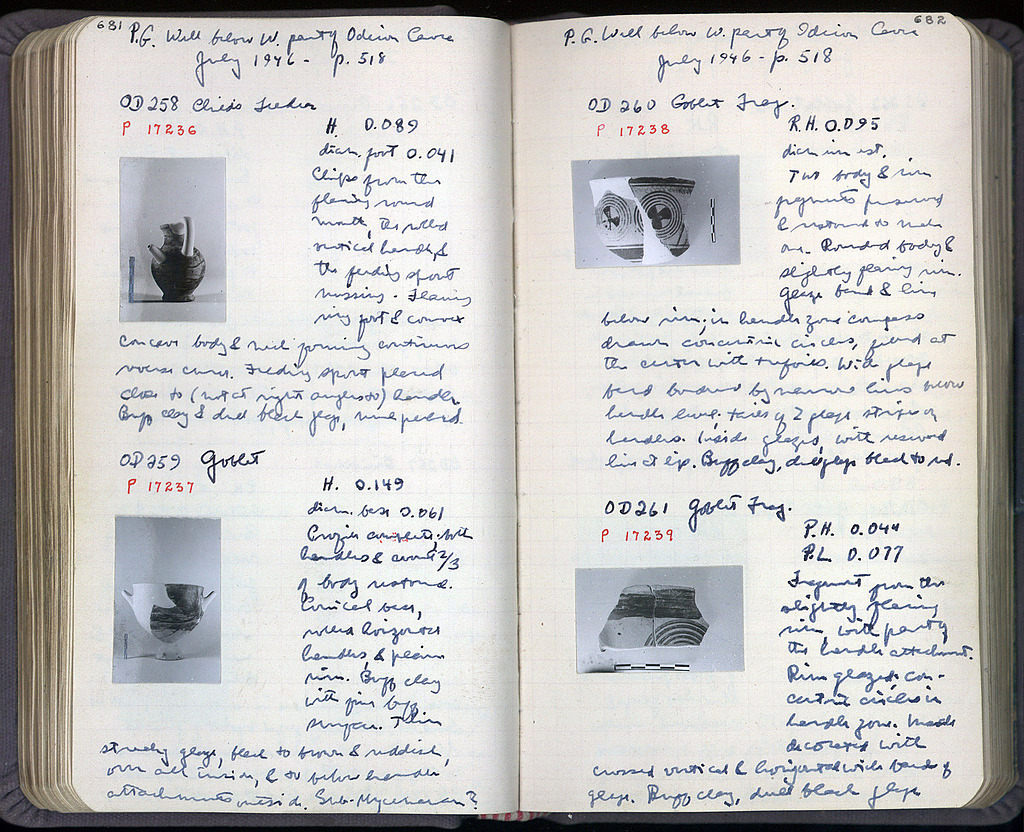 681
P.G. Well below W. part of Odeion Cavea
July 1946 - p. 518
OD 258 Child's Feeder
P 17236
H. 0.089
diam. foot 0.041
Chips from the
flaring round
mouth, the rolled
vertical handle &
the feeding spout
missing. Flaring
ring foot & convex
concave body & neck forming continuous
reverse curve. Feeding spout placed
close to (not at right angles to) handle.
Buff clay & dull black glaze, much peeled.
OD 259 Goblet
P 17237
H. 0.149
diam. base 0.061
Profile complete; both
handles & about 2/3
of body restored.
Conical base,
rolled horizontal
handles, & plain
rim. Buff clay
with fine buff
surface. Thin
streaky glaze, black to brown & reddish,
over all inside, & to below handle
attachments outside. Sub-Mycenaean?
682
P.G. Well below W. part of Odeion Cavea
July 1946 - p. 518
OD 260 Goblet Frag.
P 17238
P.H. 0.095
diam. rim est.
Two body & rim
fragments preserved
& restored to make
one. Rounded body &
slightly flaring rim.
Glaze band & line
below rim; in handle zone compass
drawn concentric circles, filled at
the center with trefoils. Wide glaze
band bordered by narrow lines below
handle zone. Traces of 2 glaze stripes on
handles. Inside glazed, with reserved
line at lip. Buff clay, dull glaze black to red.
OD 261 Goblet Frag.
P 17239
P.H. 0.044
P.L. 0.077
Fragment from the
slightly flaring
rim, with part of
the handle attachment.
Rim glazed; con-
centric circles in
handle zone. Inside
decorated with
crossed vertical & horizontal wide bands of
glaze. Buff clay, dull black glaze